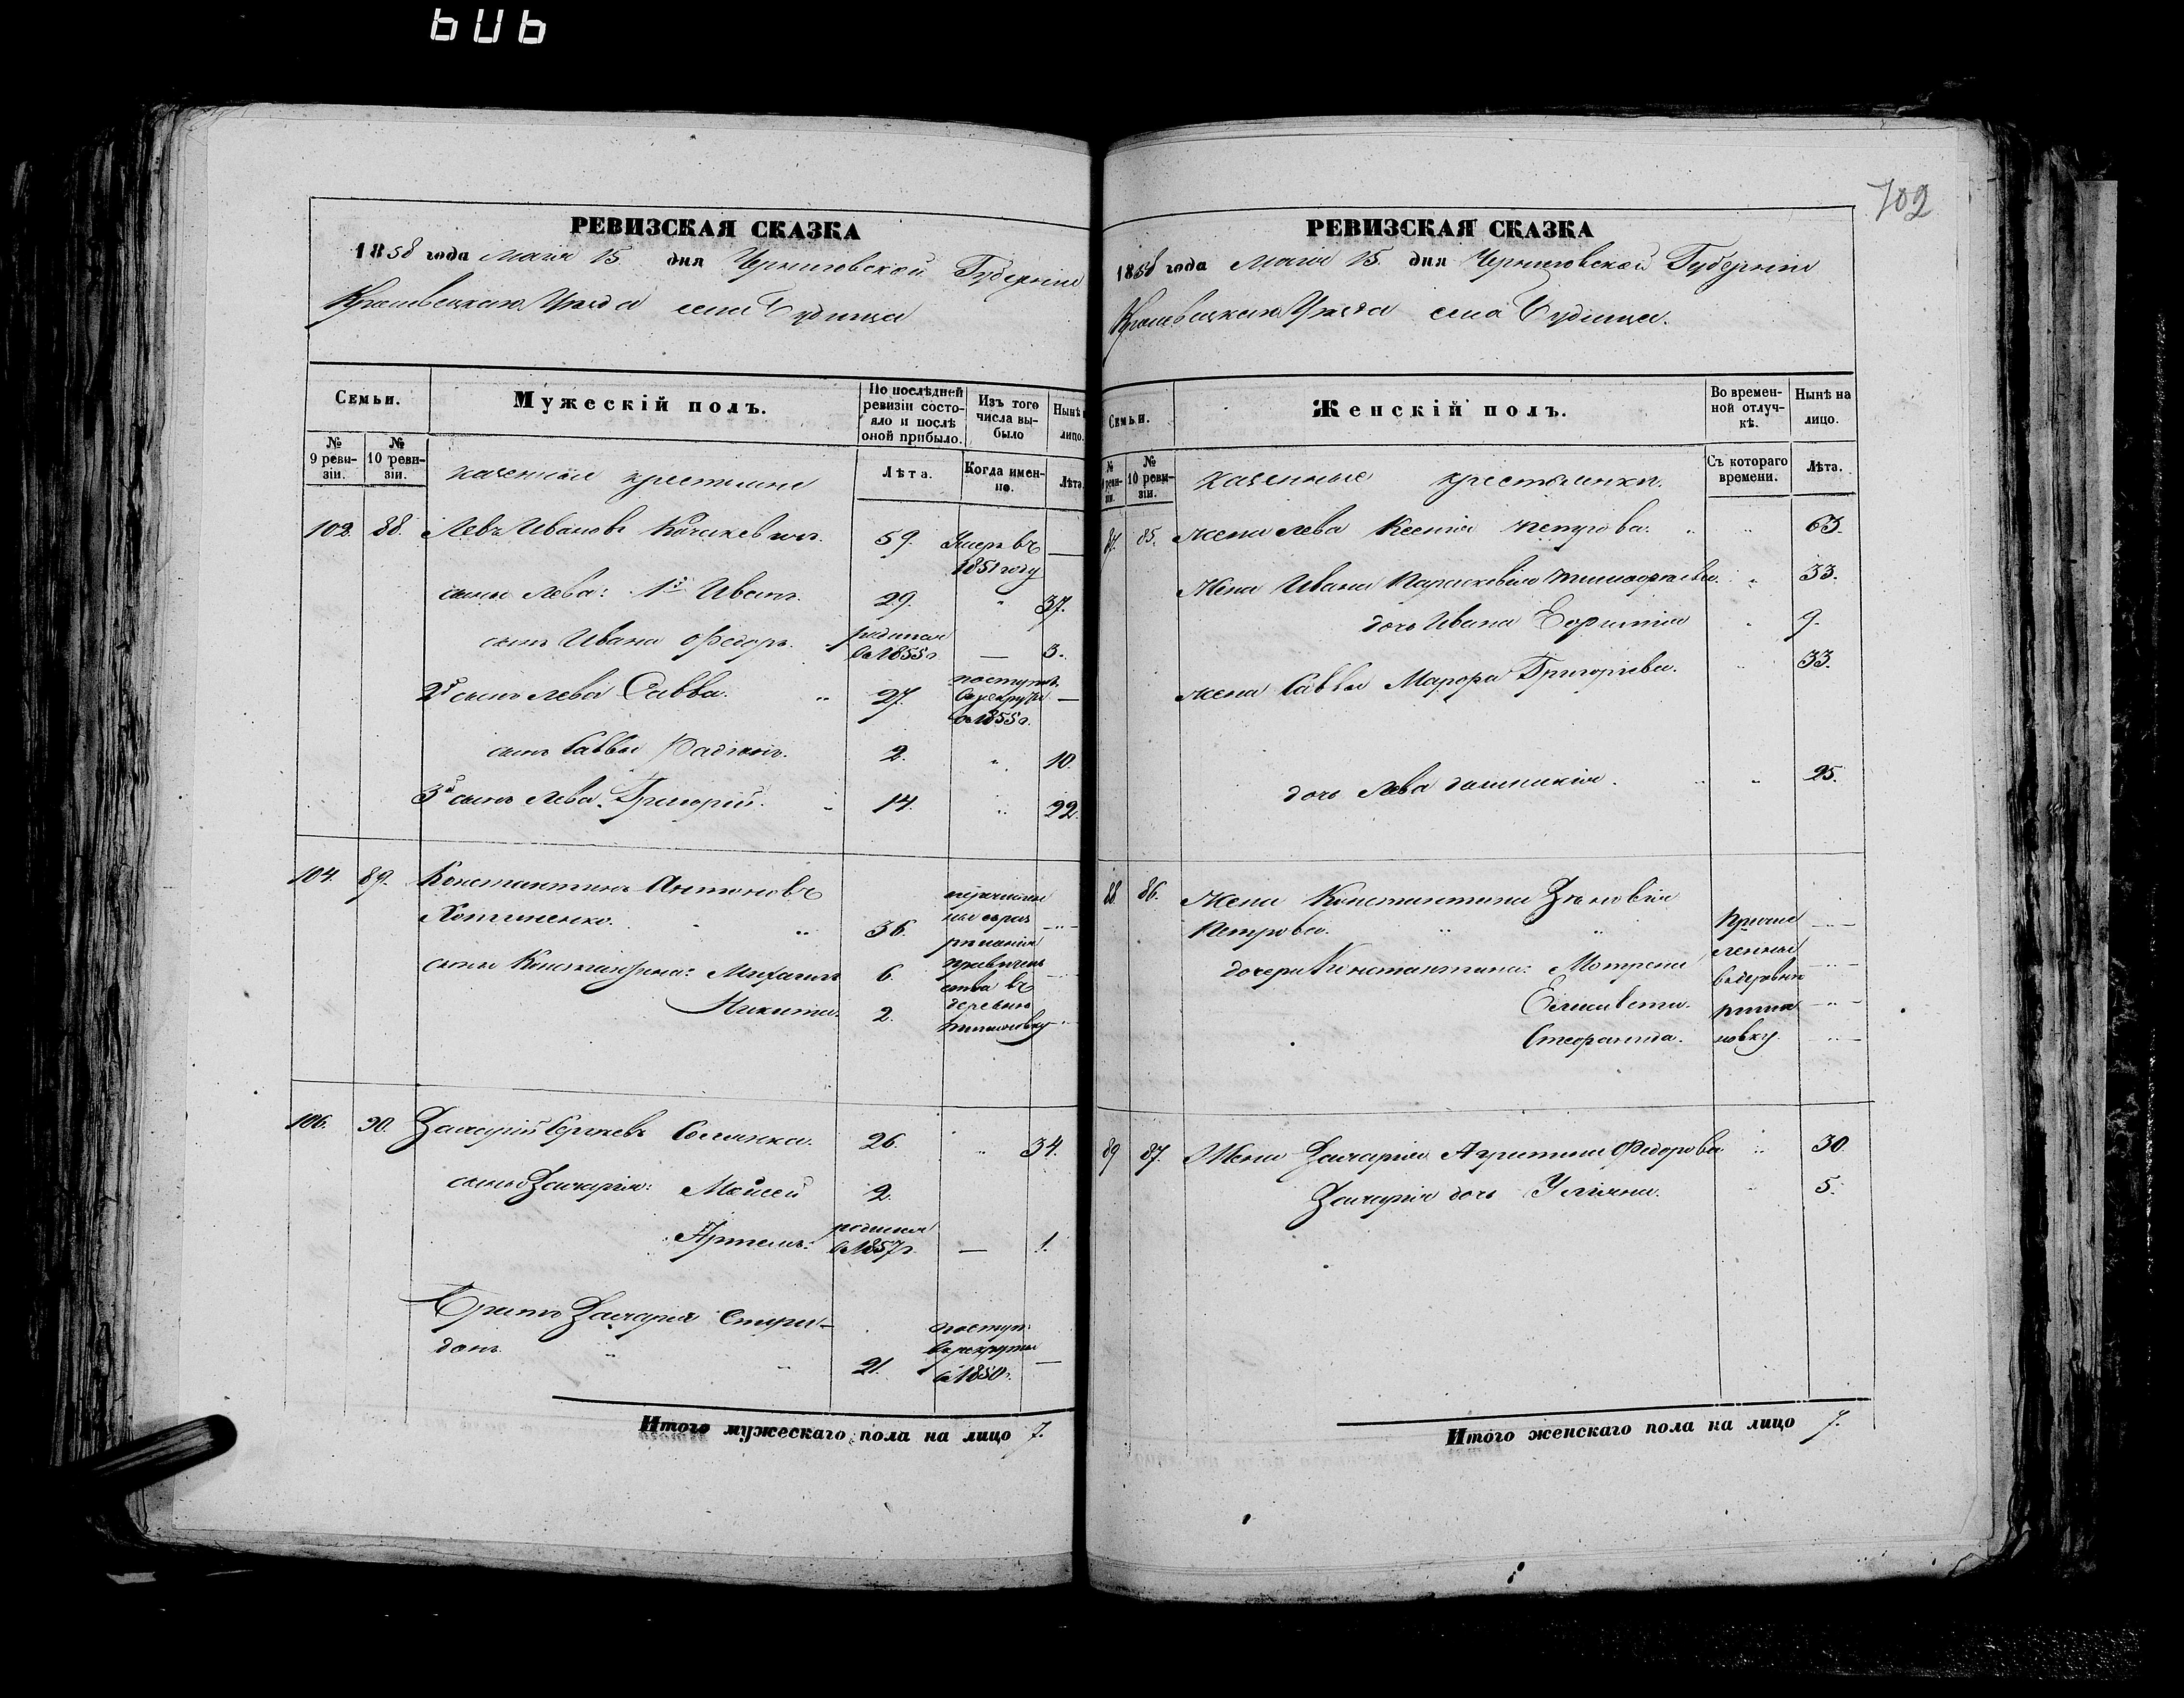 606
702
РЕВИЗСКАЯ СКАЗКА
1858 года мaiя 15. дня Черниговской Губерніи
Кролевецкаго Уѣзда села Будища
Семьи.
Мужескій полъ.
По послѣдней ревизіи состояло и послѣ оной прибыло.
Изъ того числа выбыло
Нынѣ на лицо.
№ 9 ревизіи.
№ 10 ревизіи.
казенные крестьяне
Лѣта.
Когда именно.
Лѣта.
102. 88. Левъ Ивановъ 59. Умеръ въ 1851 году —
сыны Лева: 1й Иванъ. 29. " 37.
сынъ Ивана Федоръ. родился въ 1855 г. — 3.
2й сынъ Лева Савва. " 27. поступ. въ рекруты въ 1855 г. —
сынъ Саввы Радіонъ. 2. " 10.
3й сынъ Лева Григорій. " 14. " 22.
104. 89. Константинъ Антоновъ
Хотиненко. " 36. —
сыны Константина: Михаилъ 6. —
Никита. 2. —
деревню
106. 90. Захарій Сергѣевъ 26. " 34.
сыны Захарія: Мойсей 2.
Артемъ: родился въ 1857 г. — 1.
Братъ Захарія Спири-
донъ " 21. поступ: въ рекруты въ 1850 г. —
Итого мужескаго пола на лицо 7.
РЕВИЗСКАЯ СКАЗКА
1858 года мaiя 15. дня Черниговской Губерніи
Кролевецкаго Уѣзда села Будища.
Семьи.
Женскій полъ.
Во временной отлучкѣ.
Нынѣ на лицо.
№ 9 ревизіи.
№ 10 ревизіи.
казенные крестьянки.
Съ котораго времени.
Лѣта.
87. 85. жена Лева Ксенія Петрова. " 63.
Жена Ивана Параскевія Тимофѣева. " 33.
дочь Ивана Евфимія " 9.
жена Саввы Марфа Григоріева. " 33.
дочь Лева " 25.
88. 86. Жена Константина Зѣновія
Петрова. " " Причис —
дочери Константина: Мотрена ленные —
въ деревню
Елисавета. —
новку. —
89 87. Жена Захарія Агрипина Федорова " 30
Захарія дочь Уліяна. " 5.
Итого женскаго пола на лицо 7.